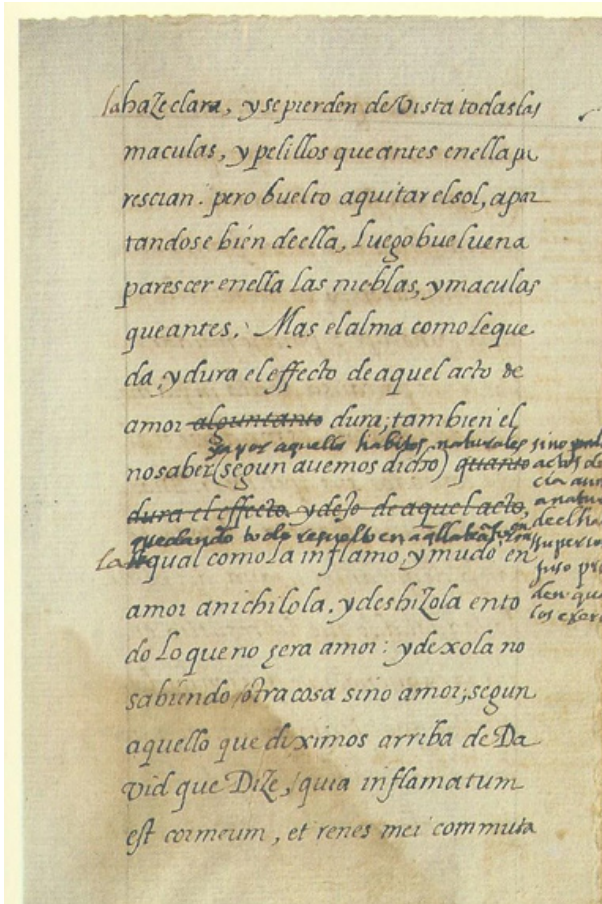 la haze clara, y se pierden de vista todas las
maculas, y pelillos que antes en ella pa
rescian. pero buelto a quitar el sol, apar
tandose bien de ella, luego buelven a
parescer en ella las nieblas, y maculas
que antes. Mas el alma como le que
da, y dura el effecto de aquel acto de
amor algun tanto dura; tambien el
no por aquello habitos naturales sino
no saber (segun avemos dicho) quanto
dura el effecto y dexo de aquel acto,
quedando todo resuelto en
la qual como la inflamo, y mudo en
amor anichilola, y deshizola en to
do lo que no hera amor: y dexola no
sabiendo otra cosa sino amor; segun
aquello que diximos arriba de Da
vid que Dize, quia inflamatum
est cor meum, et renes mei commuta
actos de
cia
a natur
superior
den que
los